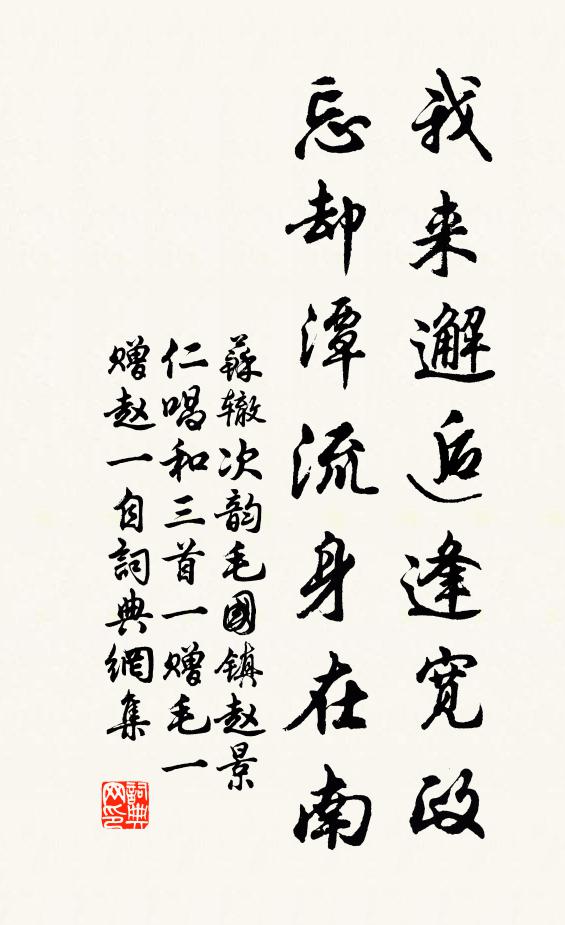 我来邂逅逢寛政
忘却潭流身在南
蘇辙次韵毛國镇赵景
仁唱和三首一赠毛一
赠赵一自詞典網集
詞典网印